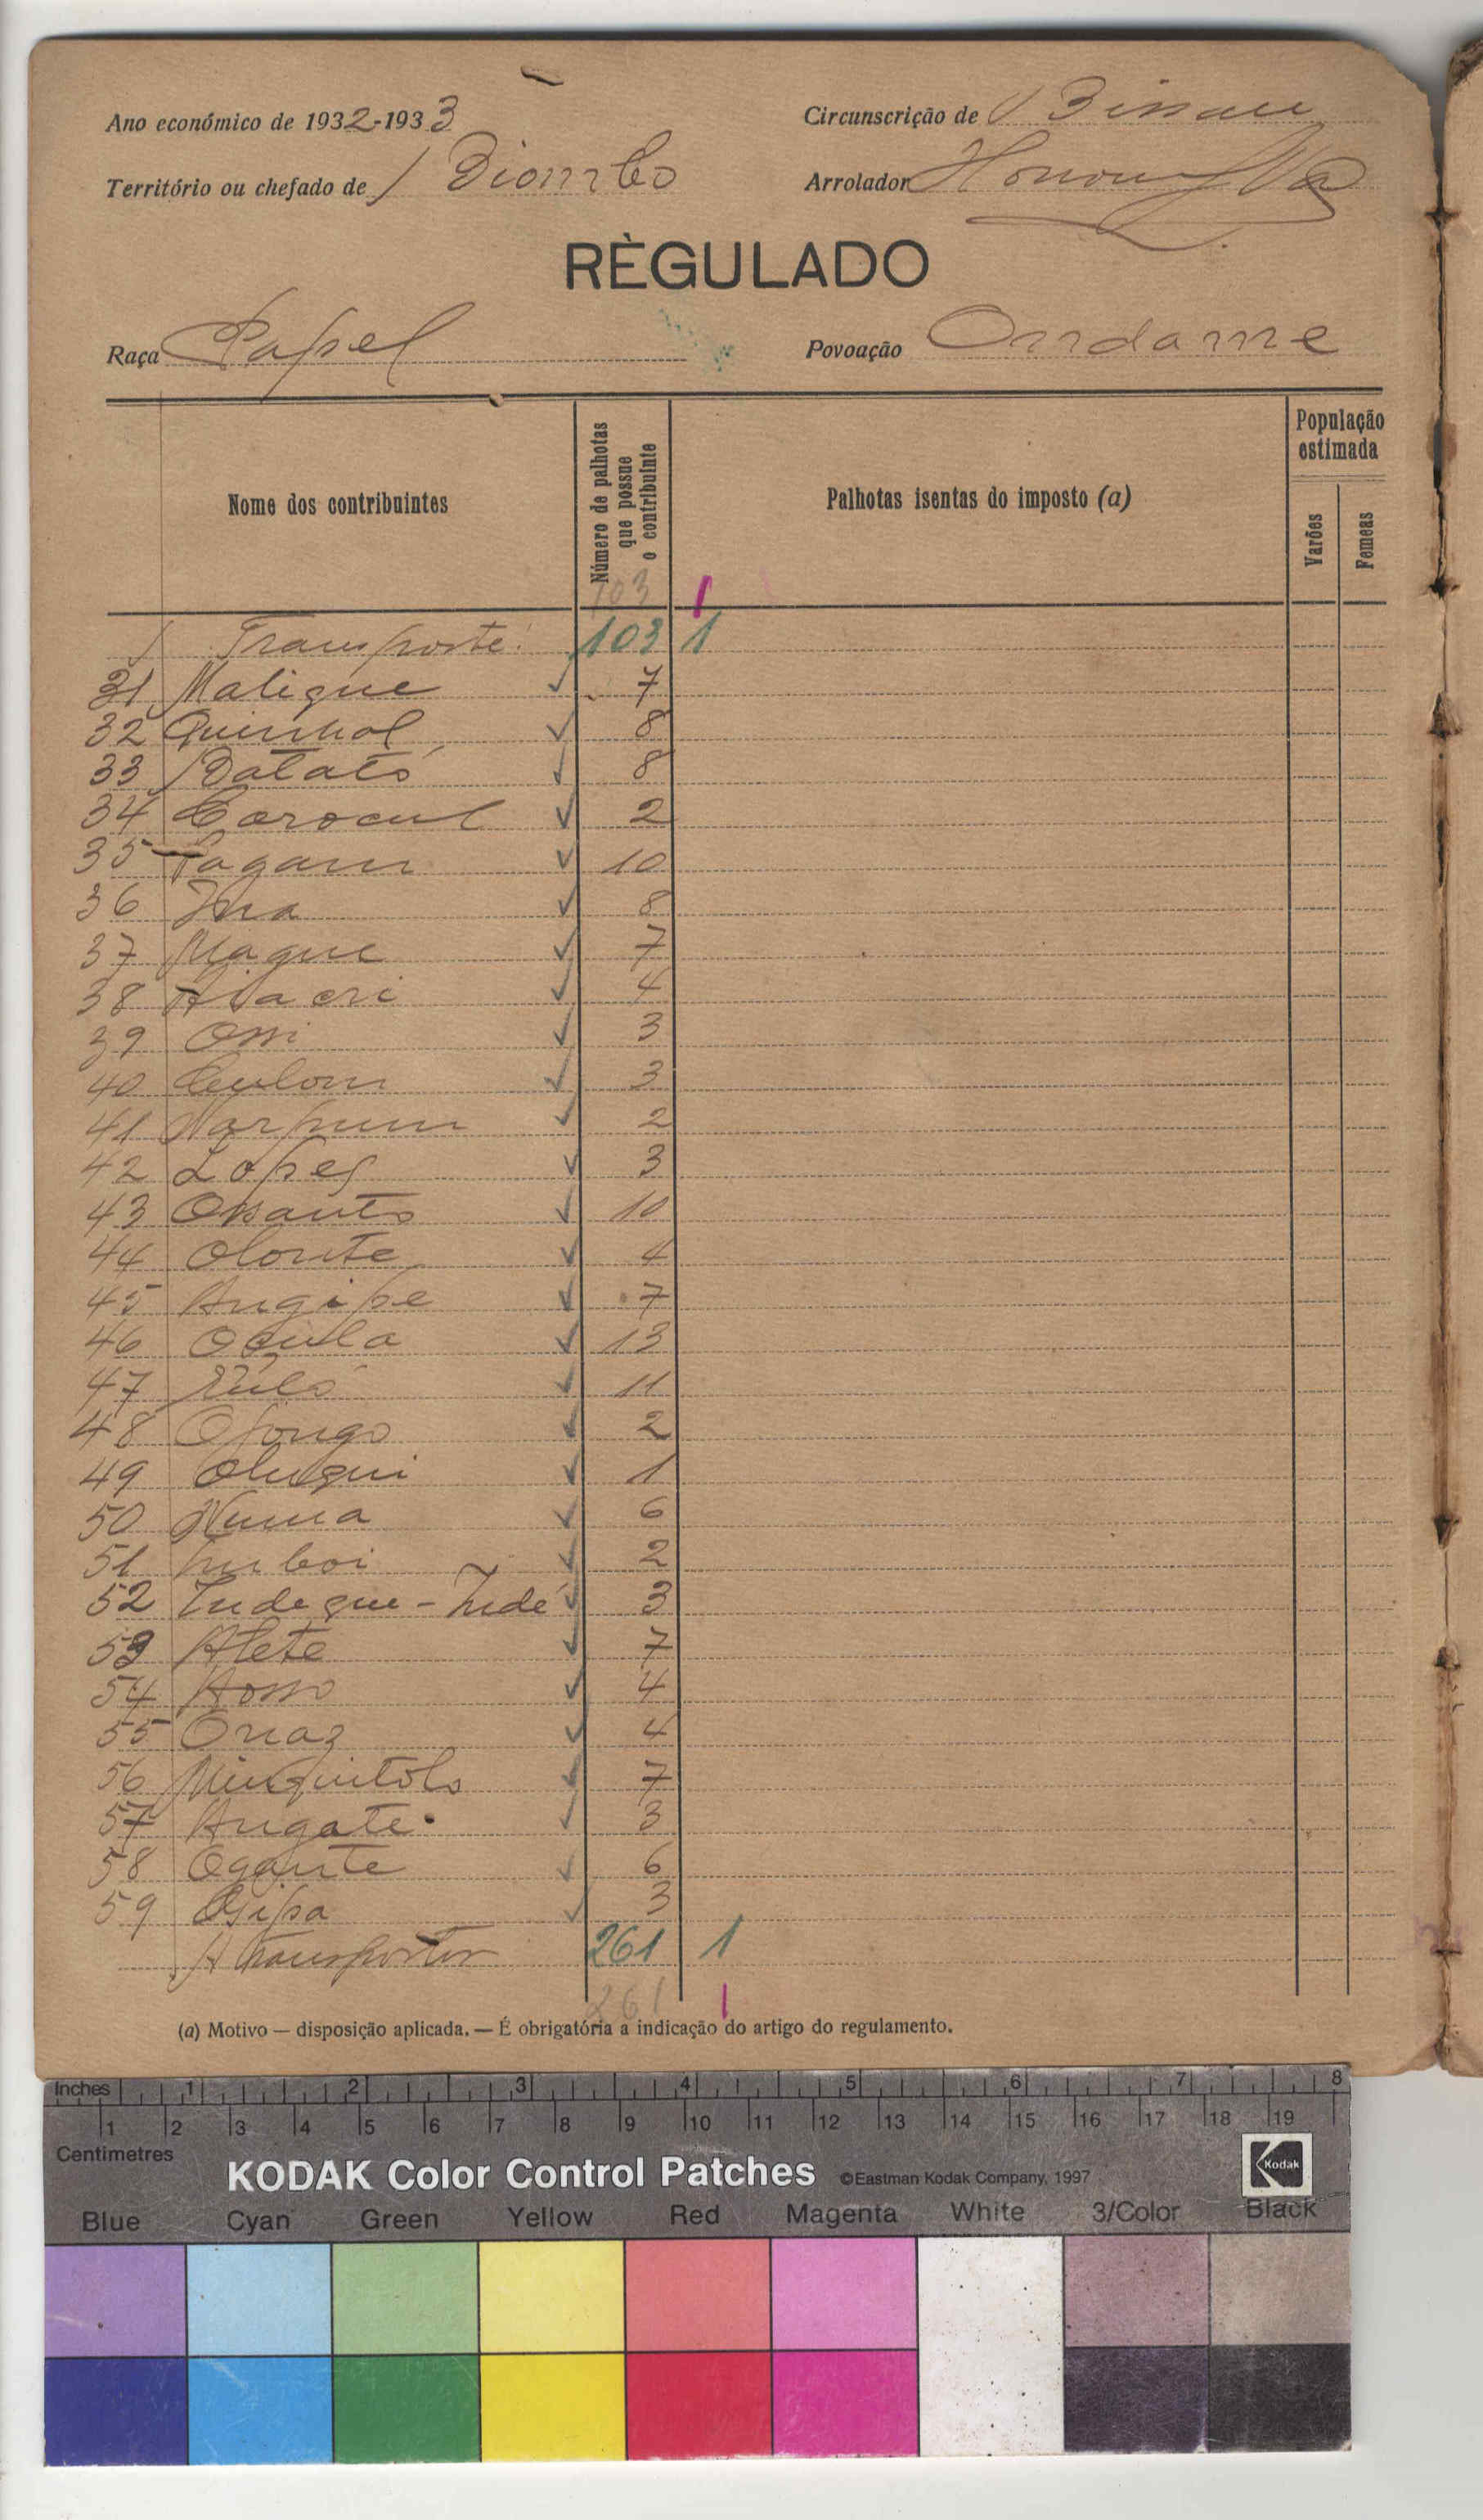 Ano económico de 1932-1933
Circunscrição de Bissau
Território ou chefado de Biombo
Arrolador
RÈGULADO
Raça Papel
Povoação Ondame
Nome dos contribuintes
Número de palhotas que possue o contribuinte
Palhotas isentas do imposto (a)
População estimada
Varões
Femeas
103 1
Transporte 103 1
31 Malique 7
32 Quinhol 8
33 Batató 8
34 Carocul 2
35 10
36 8
37 Maque 7
38 4
39 Ossi 3
40 3
41 2
42 Lopes 3
43 Ossanto 10
44 Olonte 4
45 Angipe 7
46 Ocula 13
47 11
48 2
49 1
50 Numa 6
51 2
52 3
53 Alete 7
54 4
55 4
56 7
57 Angate 3
58 Ogante 6
59 3
A transportar 261 1
261 1
(a) Motivo — disposição aplicada. — É obrigatória a indicação do artigo do regulamento.
Inches 1 2 3 4 5 6 7 8
1 2 3 4 5 6 7 8 9 10 11 12 13 14 15 16 17 18 19
Centimetres
KODAK Color Control Patches ©Eastman Kodak Company, 1997 Kodak
Blue Cyan Green Yellow Red Magenta White 3/Color Black